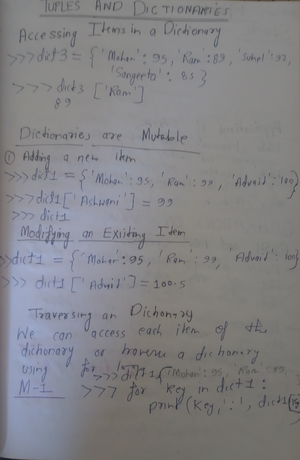 TUPLES AND DICTIONARIES
Accessing Items in a Dictionary
>>> dict3 = {'Mohan': 95, 'Ram': 89, 'Suhel': 92,
'Sangeeta': 85}
>>> dict3 ['Ram']
89
Dictionaries are Mutable
① Adding a new item
>>> dict1 = {'Mohan': 95, 'Ram': 99, 'Advaid': 100}
>>> dict1['Ashwani'] = 99
>>> dict1
Modifying an Existing Item
>> dict1 = {'Mohan': 95, 'Ram': 99, 'Advaid': 100}
>>> dict1 ['Advaid'] = 100.5
Traversing an Dictionary
We can access each item of the
dictionary or traverse a dictionary
using for loop
>>> dict1 {'Mohan': 95, Ram: 89
M-1 >>> for key in dict1 :
print (Key, ':', dict1